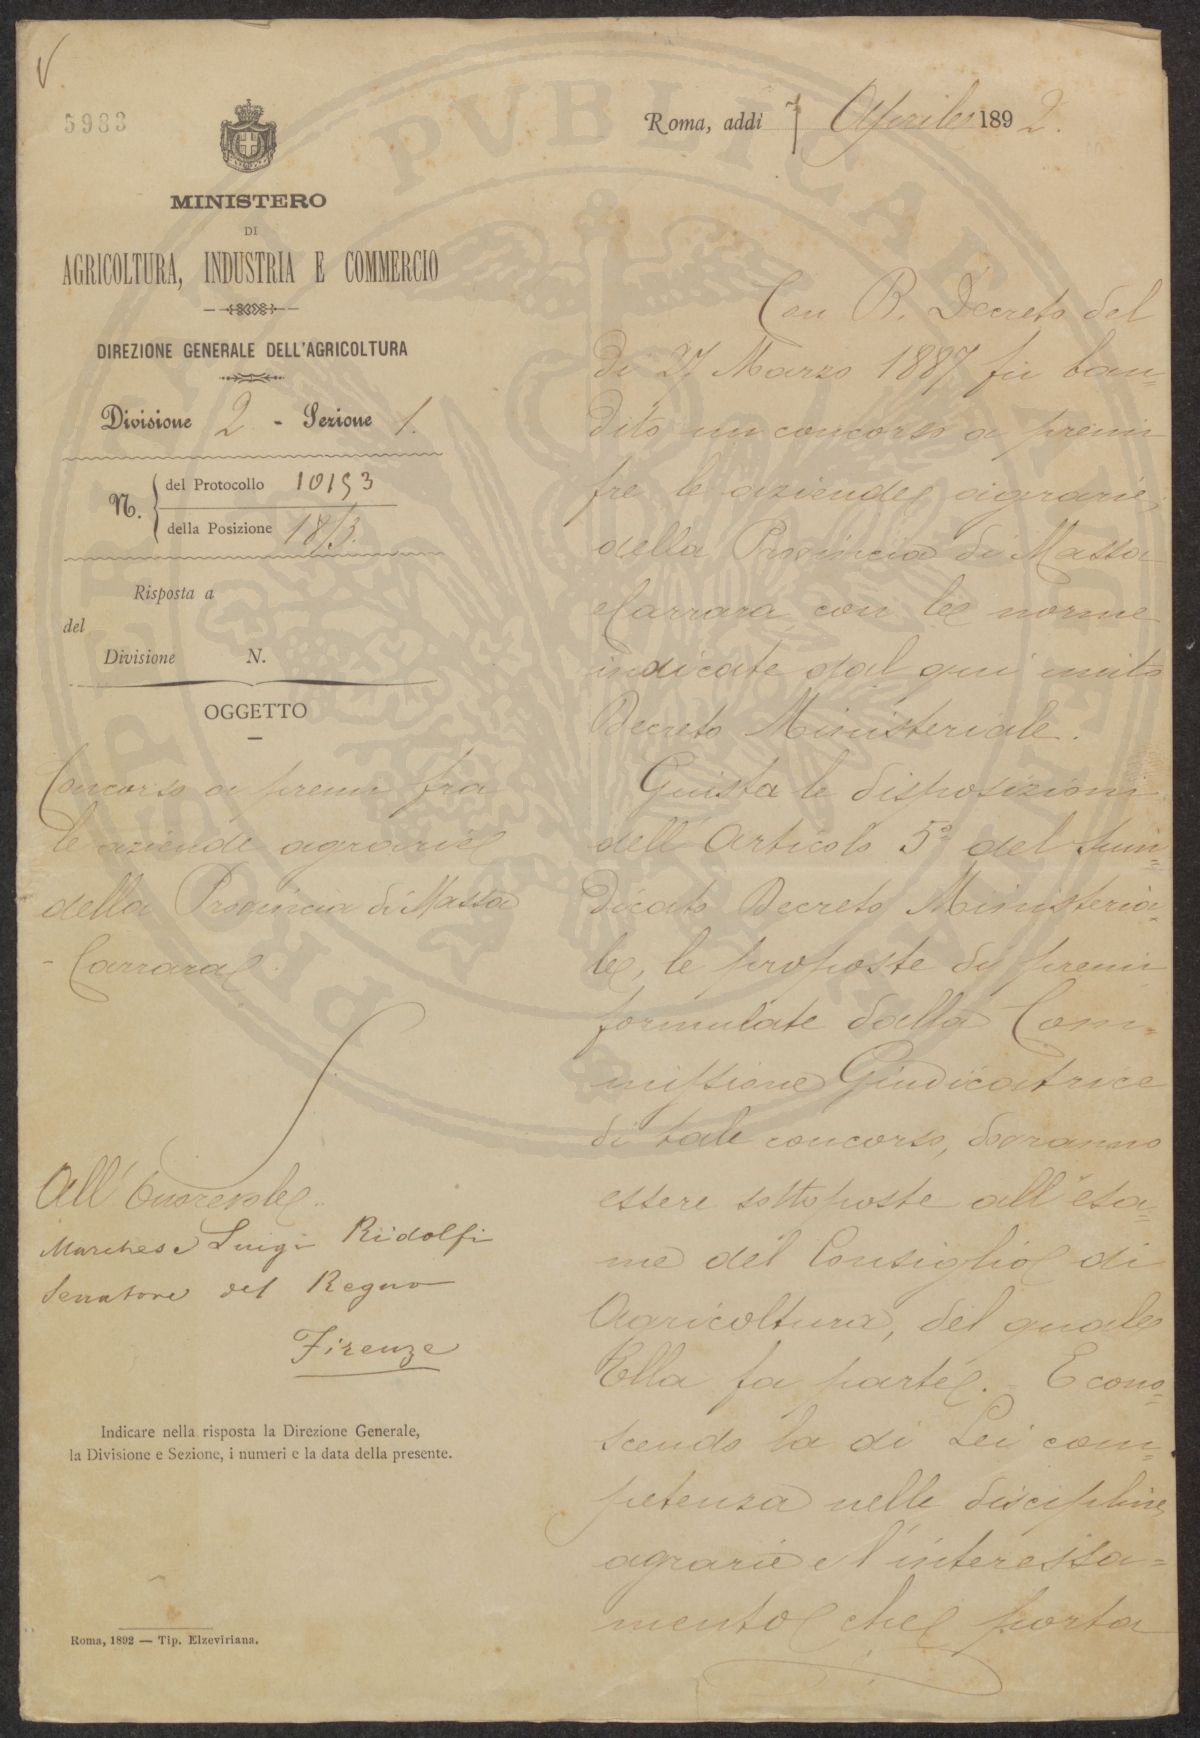 5983
MINISTERO
DI
AGRICOLTURA, INDUSTRIA E COMMERCIO
DIREZIONE GENERALE DELL'AGRICOLTURA
Divisione 2 - Sezione 1.
N. del Protocollo 10153
della Posizione 18/3.
Risposta a
del
Divisione N.
OGGETTO
Concorso a premi fra
le aziende agrarie
della Provincia di Massa
- Carrara
All'Onorevole
Marchese Luigi Ridolfi
Senatore del Regno
Firenze
Indicare nella risposta la Direzione Generale,
la Divisione e Sezione, i numeri e la data della presente.
Roma, 1892 — Tip. Elzeviriana.
Roma, addì 7 Aprile 1892.
Con R. Decreto del
di 27 Marzo 1887 fu ban=
dito un concorso a premi
fra le aziende agrarie
della Provincia di Massa
Carrara con le norme
indicate dal qui unito
Decreto Ministeriale.
Giusta le disposizioni
dell'Articolo 5° del suin=
dicato Decreto Ministeria=
le, le proposte di premi
formulate dalla Com=
missione Giudicatrice
di tale concorso, dovranno
essere sottoposte all'esa=
me del Consiglio di
Agricoltura, del quale
Ella fa parte. = E cono=
scendo la di Lei com=
petenza nelle discipline
agrarie e l'interessa=
mento che porta
PROSPERITATI PVBLICAE AVGENDAE